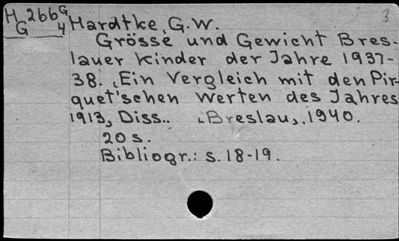 H 266 G
G 4
3
Hardtke, G.W.
Grösse und Gewicht Bres-
lauer Kinder der Jahre 1937-
38. Ein Vergleich mit den Pir-
quet'schen Werten des Jahres
1913, Diss.. Breslau, 1940.
20 s.
Bibliogr.: s. 18-19.